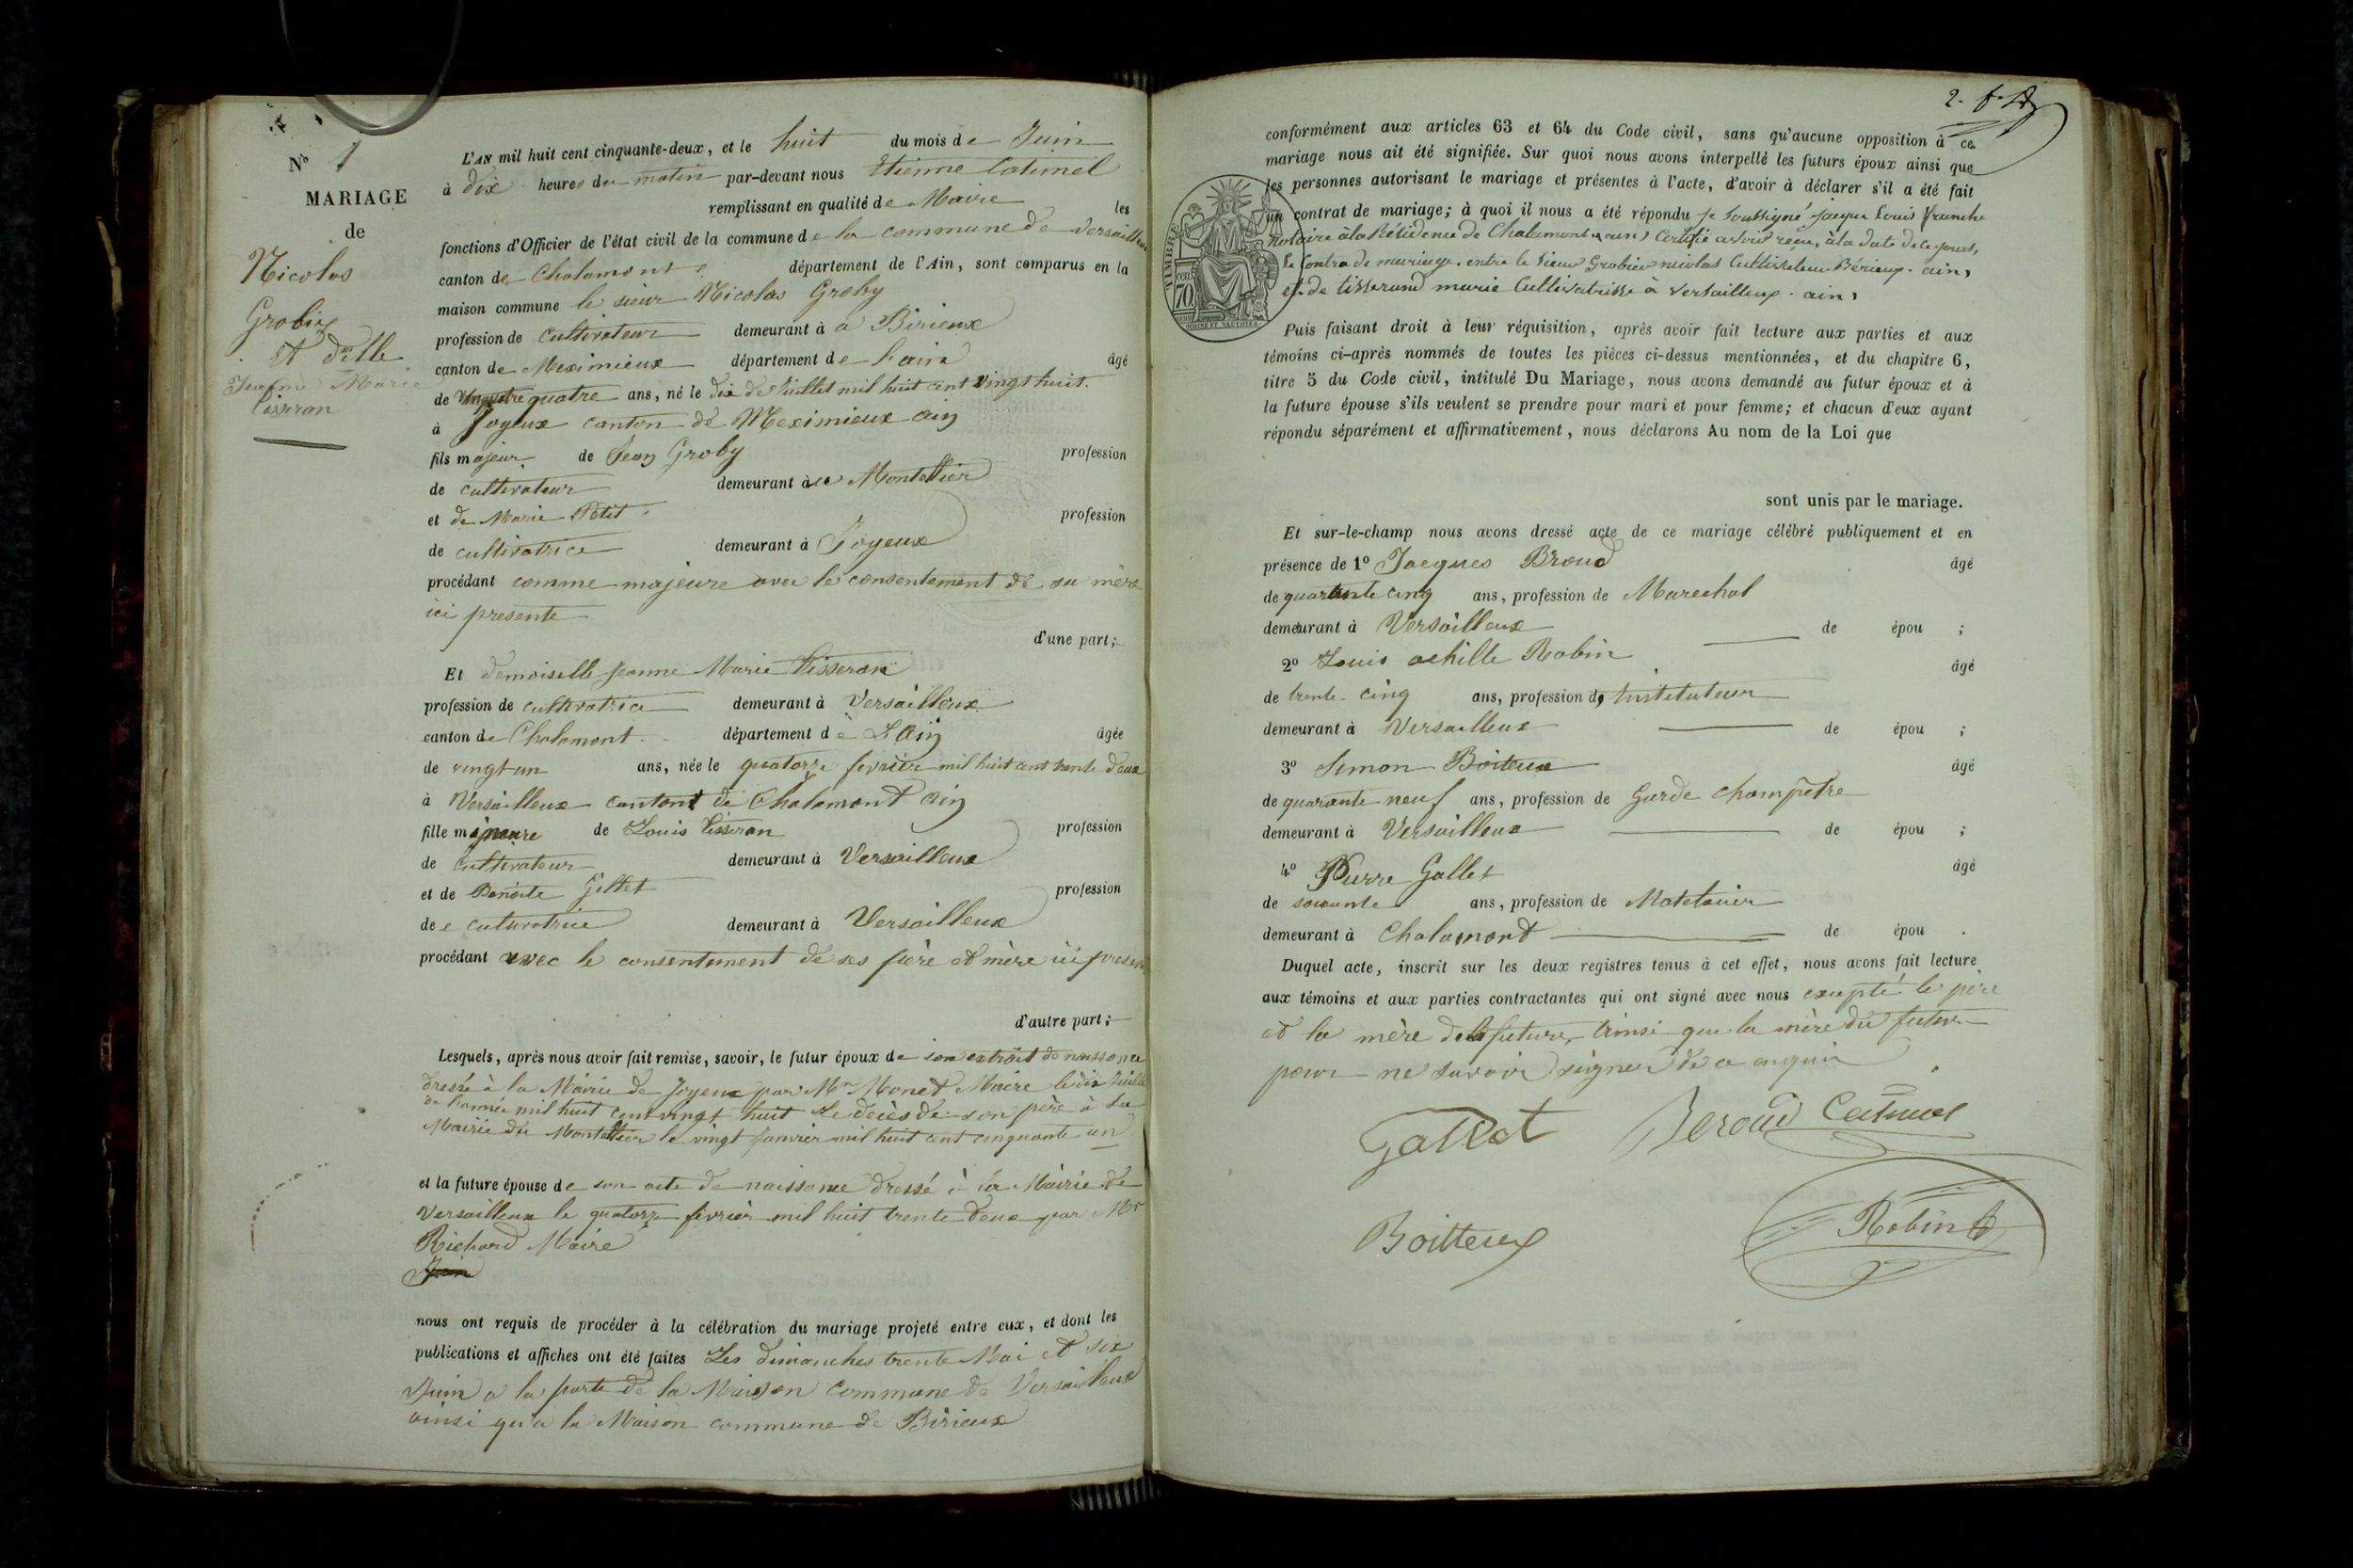 N° 1
MARIAGE
de
Nicolas
Grobiy
et dlle
Jeanne Marie
tisseran
L'AN mil huit cent cinquante-deux, et le huit du mois de Juin
à dix heures du matin par-devant nous Etienne Catimel
remplissant en qualité de Maire les
fonctions d'Officier de l'état civil de la commune de la commune de Versailleux
canton de Chalamont département de l'Ain, sont comparus en la
maison commune le sieur Nicolas Groby
profession de cultivateur demeurant à a Birieux
canton de Meximieux département de l'ain âgé
de quatre ans, né le dix de Juillet mil huit cent vingt huit.
à Joyeux canton de Meximieux ain
fils majeur de Jean Groby profession
de cultivateur demeurant à Montellier
et de Marie Petit profession
de cultivatrice demeurant à Joyeux
procédant comme majeure avec le consentement de sa mère
ici presente
d'une part;
Et demoiselle jeanne Marie tisseran
profession de cultivatrice demeurant à Versailleux
canton de Chalamont département de L'Ain âgée
de vingt un ans, née le quatorze fevrier mil huit cent trente deux
à Versailleux canton de Chalamont ain
fille mineure de Louis tisseran profession
de cultivateur demeurant à Versailleux
et de Benoite Gillet profession
de cultivatrice demeurant à Versailleux
procédant avec le consentement de ses père et mère ici presen
d'autre part;
Lesquels, après nous avoir fait remise, savoir, le futur époux de son extrait de naissance
dressé à la Mairie de Joyeux par Mr Monet Maire le dix Juillet
de l'année mil huit cent vingt huit le décès de son père à la
Mairie du Montellier le vingt Janvier mil huit cent cinquante un
et la future épouse de son acte de naissance dressé à la Mairie de
Versailleux le quatorze fevrier mil huit trente deux par Mr
Richard Maire
nous ont requis de procéder à la célébration du mariage projeté entre eux, et dont les
publications et affiches ont été faites Les dimanches trente Mai et six
Juin a la porte de la Maison commune de Versailleux
ainsi qu'a la Maison commune de Birieux
2.
conformément aux articles 63 et 64 du Code civil, sans qu'aucune opposition à ce
mariage nous ait été signifiée. Sur quoi nous avons interpellé les futurs époux ainsi que
les personnes autorisant le mariage et présentes à l'acte, d'avoir à déclarer s'il a été fait
un contrat de mariage; à quoi il nous a été répondu je soussigné jacque Louis
notaire à la Résidence de Chalamont (ain) Certifie avoir reçu, à la date de ce jour,
le Contra de mariage. entre le sieur Grobiée nicolas Cultivateur Bérieux. ain,
et de tisserand marie Cultivatrisse à Versailleux. ain,
TIMBRE
70
Puis faisant droit à leur réquisition, après avoir fait lecture aux parties et aux
témoins ci-après nommés de toutes les pièces ci-dessus mentionnées, et du chapitre 6,
titre 5 du Code civil, intitulé Du Mariage, nous avons demandé au futur époux et à
la future épouse s'ils veulent se prendre pour mari et pour femme; et chacun d'eux ayant
répondu séparément et affirmativement, nous déclarons Au nom de la Loi que
sont unis par le mariage.
Et sur-le-champ nous avons dressé acte de ce mariage célébré publiquement et en
présence de 1° Jacques Broud âgé
de quarante cinq ans, profession de Marechal
demeurant à Versailleux de épou ;
2° Louis achille Robin âgé
de trente-cinq ans, profession de Instituteur
demeurant à Versailleux de épou ;
3° Simon Boiteux âgé
de quarante neuf ans, profession de Garde champêtre
demeurant à Versailleux de épou ;
4° Pierre Gallet âgé
de soixante ans, profession de Matelaier
demeurant à Chalamont de épou .
Duquel acte, inscrit sur les deux registres tenus à cet effet, nous avons fait lecture
aux témoins et aux parties contractantes qui ont signé avec nous excepté le père
et la mère de la future, ainsi que la mère du futur
pour ne savoir signer de ce enquis
Gallet Beroud Catimel
Boitteux Robin